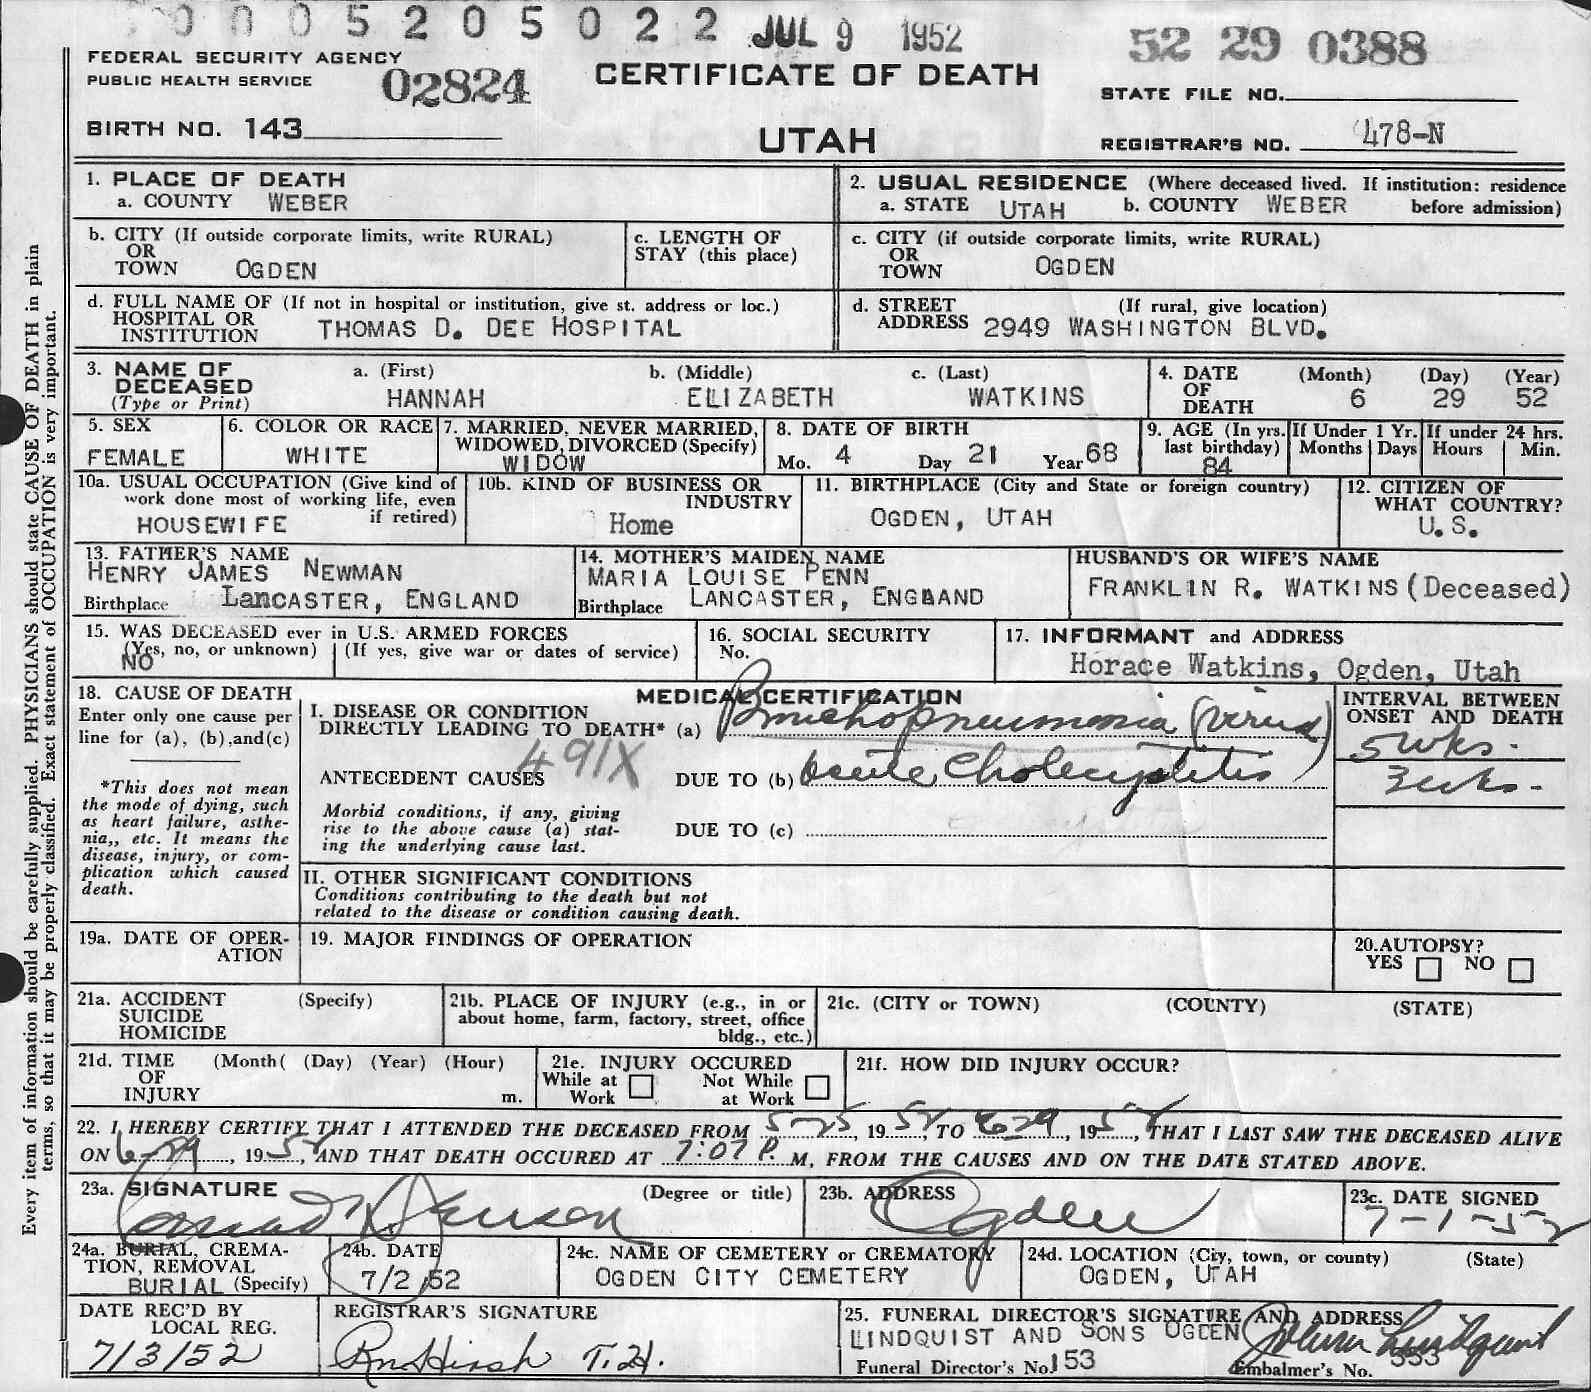 0 0 0 5 2 0 5 0 2 2 JUL 9 1952
52 29 0388
FEDERAL SECURITY AGENCY
PUBLIC HEALTH SERVICE
02824
CERTIFICATE OF DEATH
STATE FILE NO.
BIRTH NO. 143
UTAH
REGISTRAR'S NO. 478-N
1. PLACE OF DEATH
a. COUNTY WEBER
2. USUAL RESIDENCE (Where deceased lived. If institution: residence
a. STATE UTAH b. COUNTY WEBER before admission)
b. CITY (If outside corporate limits, write RURAL)
OR
TOWN OGDEN
c. LENGTH OF
STAY (this place)
c. CITY (if outside corporate limits, write RURAL)
OR
TOWN OGDEN
d. FULL NAME OF (If not in hospital or institution, give st. address or loc.)
HOSPITAL OR
INSTITUTION THOMAS D. DEE HOSPITAL
d. STREET (If rural, give location)
ADDRESS 2949 WASHINGTON BLVD.
3. NAME OF
DECEASED
(Type or Print)
a. (First)
HANNAH
b. (Middle)
ELIZABETH
c. (Last)
WATKINS
4. DATE
OF
DEATH
(Month) (Day) (Year)
6 29 52
5. SEX
FEMALE
6. COLOR OR RACE
WHITE
7. MARRIED, NEVER MARRIED,
WIDOWED, DIVORCED (Specify)
WIDOW
8. DATE OF BIRTH
Mo. 4 Day 21 Year 68
9. AGE (In yrs.
last birthday)
84
If Under 1 Yr.
Months Days
If under 24 hrs.
Hours Min.
10a. USUAL OCCUPATION (Give kind of
work done most of working life, even
if retired)
HOUSEWIFE
10b. KIND OF BUSINESS OR
INDUSTRY
Home
11. BIRTHPLACE (City and State or foreign country)
OGDEN, UTAH
12. CITIZEN OF
WHAT COUNTRY?
U.S.
13. FATHER'S NAME
HENRY JAMES NEWMAN
Birthplace LANCASTER, ENGLAND
14. MOTHER'S MAIDEN NAME
MARIA LOUISE PENN
Birthplace LANCASTER, ENGLAND
HUSBAND'S OR WIFE'S NAME
FRANKLIN R. WATKINS (Deceased)
15. WAS DECEASED ever in U.S. ARMED FORCES
(Yes, no, or unknown) (If yes, give war or dates of service)
NO
16. SOCIAL SECURITY
No.
17. INFORMANT and ADDRESS
Horace Watkins, Ogden, Utah
18. CAUSE OF DEATH
Enter only one cause per
line for (a), (b), and (c)
*This does not mean
the mode of dying, such
as heart failure, asthe-
nia,, etc. It means the
disease, injury, or com-
plication which caused
death.
MEDICAL CERTIFICATION
I. DISEASE OR CONDITION
DIRECTLY LEADING TO DEATH* (a) Bronchopneumonia (virus)
491X
ANTECEDENT CAUSES DUE TO (b) Acute Cholecystitis
Morbid conditions, if any, giving
rise to the above cause (a) stat-
ing the underlying cause last.
DUE TO (c)
INTERVAL BETWEEN
ONSET AND DEATH
5 wks.
3 wks.
II. OTHER SIGNIFICANT CONDITIONS
Conditions contributing to the death but not
related to the disease or condition causing death.
19a. DATE OF OPER-
ATION
19. MAJOR FINDINGS OF OPERATION
20. AUTOPSY?
YES NO
21a. ACCIDENT (Specify)
SUICIDE
HOMICIDE
21b. PLACE OF INJURY (e.g., in or
about home, farm, factory, street, office
bldg., etc.)
21c. (CITY or TOWN) (COUNTY) (STATE)
21d. TIME (Month( (Day) (Year) (Hour)
OF
INJURY m.
21e. INJURY OCCURED
While at Not While
Work at Work
21f. HOW DID INJURY OCCUR?
22. I HEREBY CERTIFY THAT I ATTENDED THE DECEASED FROM 5-25, 1952, TO 6-29, 1952, THAT I LAST SAW THE DECEASED ALIVE
ON 6-29, 1952, AND THAT DEATH OCCURED AT 7:07 P. M, FROM THE CAUSES AND ON THE DATE STATED ABOVE.
23a. SIGNATURE (Degree or title)
23b. ADDRESS
Ogden
23c. DATE SIGNED
7-1-52
24a. BURIAL, CREMA-
TION, REMOVAL
BURIAL (Specify)
24b. DATE
7/2/52
24c. NAME OF CEMETERY or CREMATORY
OGDEN CITY CEMETERY
24d. LOCATION (City, town, or county) (State)
OGDEN, UTAH
DATE REC'D BY
LOCAL REG.
7/3/52
REGISTRAR'S SIGNATURE
T.H.
25. FUNERAL DIRECTOR'S SIGNATURE AND ADDRESS
LINDQUIST AND SONS OGDEN
Lindquist
Funeral Director's No. 153
Embalmer's No. 333
Every item of information should be carefully supplied. PHYSICIANS should state CAUSE OF DEATH in plain
terms, so that it may be properly classified. Exact statement of OCCUPATION is very important.